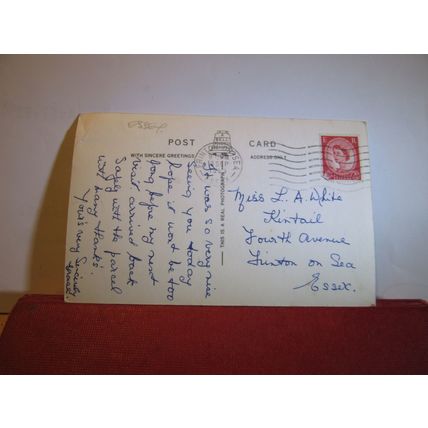 ESSEX.
POST CARD
WITH SINCERE GREETINGS
ADDRESS ONLY
THIS IS A REAL PHOTOGRAPH
It was so very nice
seeing you today
hope it wont be too
long hope my next
visit arrived back
Safely with the parcel
with many thanks.
Yours very Sincerely
Miss L. A. White
Kintail
Fourth Avenue
Frinton on Sea
Essex.